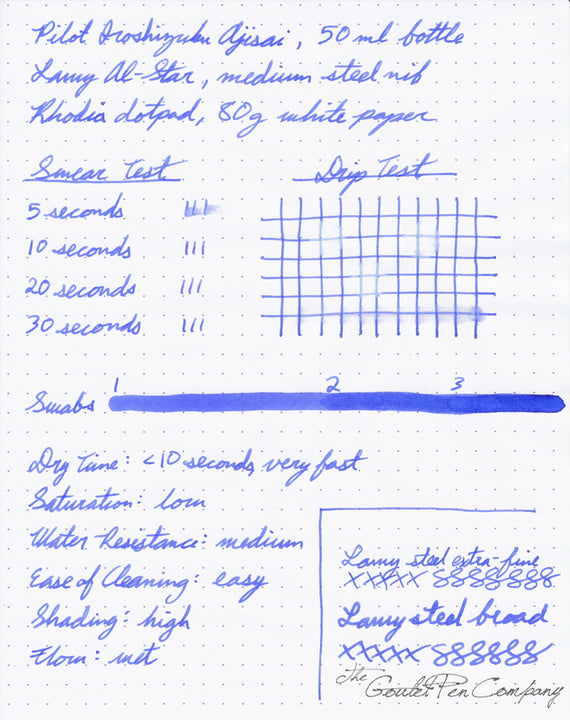 Pilot Iroshizuku Ajisai, 50 ml bottle
Lamy Al-Star, medium steel nib
Rhodia dotpad, 80g white paper
Smear Test
5 seconds
10 seconds
20 seconds
30 seconds
Drip Test
Swabs 1 2 3
Dry Time: <10 seconds, very fast
Saturation: low
Water Resistance: medium
Ease of Cleaning: easy
Shading: high
Flow: wet
Lamy steel extra-fine
xxxxx 8888888
Lamy steel broad
xxxxx 888888
The Goulet Pen Company